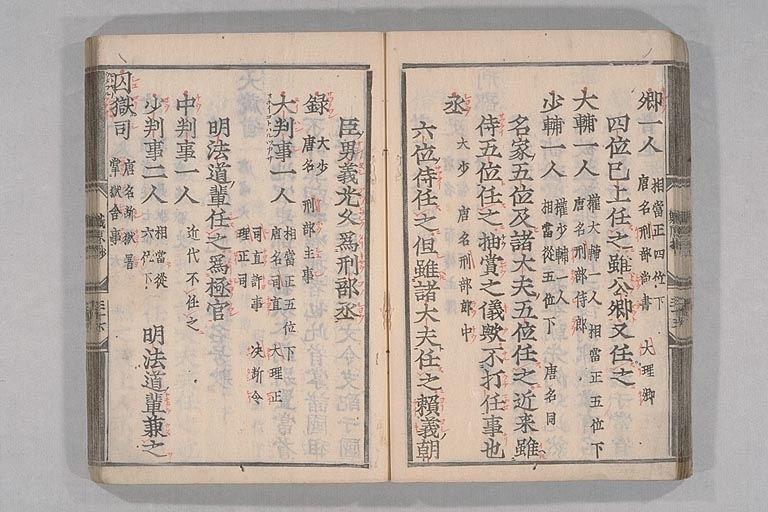 卿一人 相當正四位下 唐名刑部尚書 大理卿
四位已上任之雖公卿又任之
大輔一人 權大輔一人 相當正五位下 唐名刑部侍郎
少輔一人 權少輔一人 相當從五位下 唐名同
名家五位及諸大夫五位任之近来雖
侍五位任之抽賞之儀歟不打任事也
丞 大少 唐名刑部郎中
六位侍任之但雖諸大夫任之頼義朝
臣男義光久爲刑部丞
録 大少 唐名刑部主事
大判事一人 相當正五位下 唐名司直 大理正 司直評事 決断令 理正司
明法道輩任之爲極官
中判事一人 近代不任之
少判事二人 相當從六位下 明法道輩兼之
囚獄司 唐名断獄署 掌獄舍事